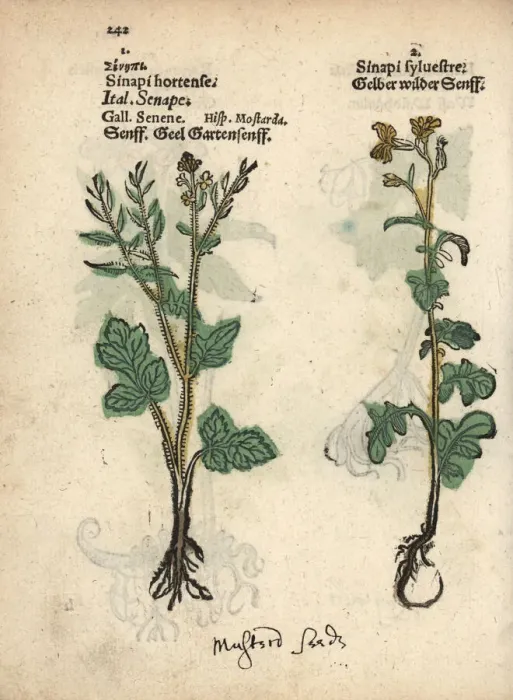 242
1.
Σίνηπι.
Sinapi hortense.
Ital. Senape.
Gall. Senene. Hisp. Mostarda.
Senff. Geel Gartensenff.
2.
Sinapi sylvestre.
Gelber wilder Senff.
Musterd Seede